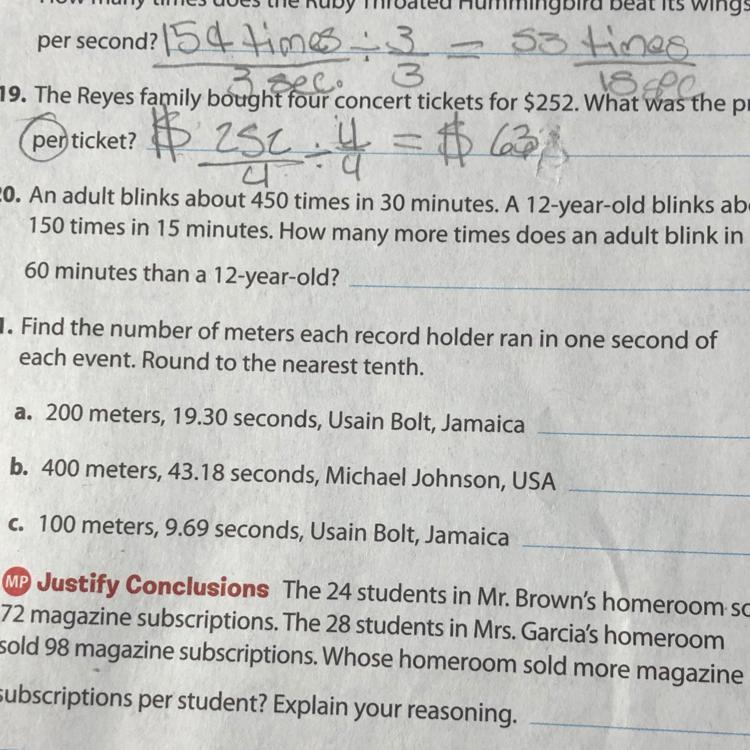 How many times does the Ruby Throated Hummingbird beat its wings
per second? 159 times ÷ 3 = 53 times
3 sec. 3 1 sec
19. The Reyes family bought four concert tickets for $252. What was the pr
per ticket? $ 252 ÷ 4 = $ 63
4 4
20. An adult blinks about 450 times in 30 minutes. A 12-year-old blinks abo
150 times in 15 minutes. How many more times does an adult blink in
60 minutes than a 12-year-old?
1. Find the number of meters each record holder ran in one second of
each event. Round to the nearest tenth.
a. 200 meters, 19.30 seconds, Usain Bolt, Jamaica
b. 400 meters, 43.18 seconds, Michael Johnson, USA
c. 100 meters, 9.69 seconds, Usain Bolt, Jamaica
MP Justify Conclusions The 24 students in Mr. Brown's homeroom so
72 magazine subscriptions. The 28 students in Mrs. Garcia's homeroom
sold 98 magazine subscriptions. Whose homeroom sold more magazine
subscriptions per student? Explain your reasoning.